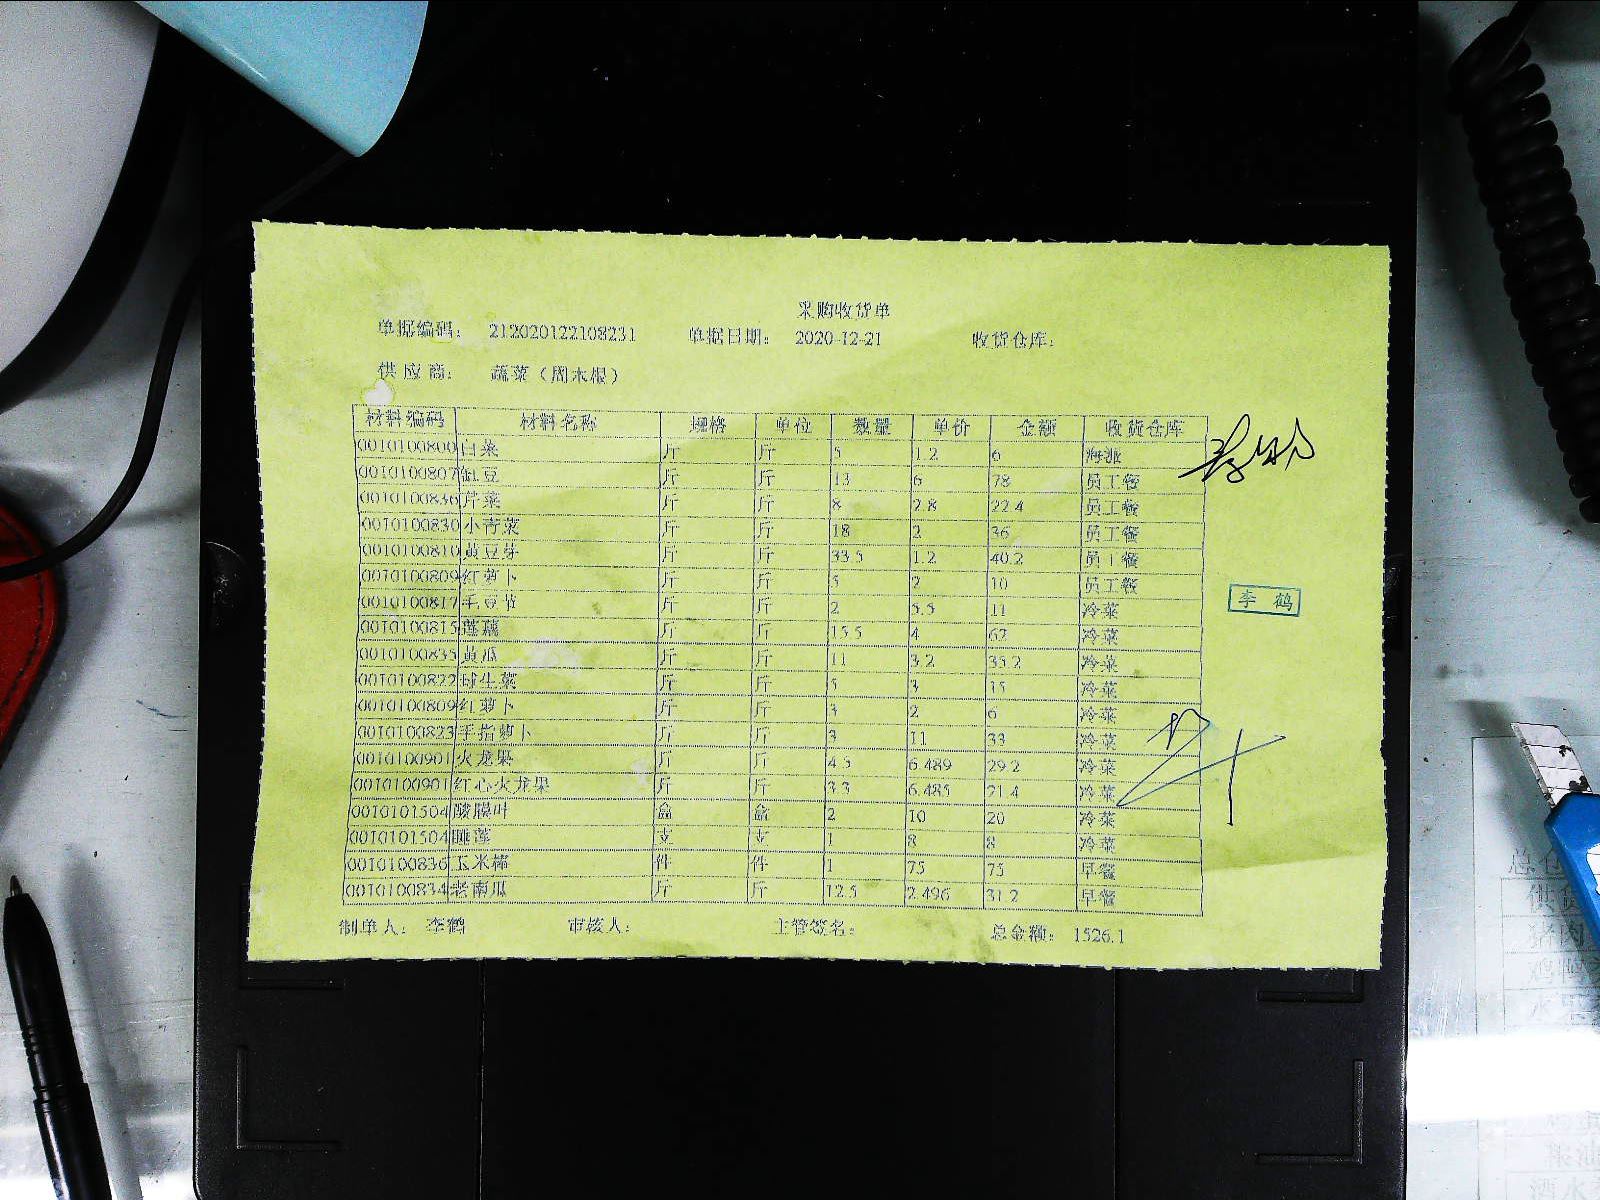 采购收货单
单据编码: 212020122108231 单据日期: 2020-12-21 收货仓库:
供应商: 蔬菜(周木根)
材料编码 材料名称 规格 单位 数量 单价 金额 收货仓库
0010100800 白菜 斤 斤 5 1.2 6 海派
0010100807 缸豆 斤 斤 13 6 78 员工餐
0010100836 芹菜 斤 斤 8 2.8 22.4 员工餐
0010100830 小青菜 斤 斤 18 2 36 员工餐
0010100810 黄豆芽 斤 斤 33.5 1.2 40.2 员工餐
0010100809 红萝卜 斤 斤 5 2 10 员工餐
0010100817 毛豆节 斤 斤 2 5.5 11 冷菜
0010100815 莲藕 斤 斤 15.5 4 62 冷菜
0010100835 黄瓜 斤 斤 11 3.2 35.2 冷菜
0010100822 球生菜 斤 斤 5 3 15 冷菜
0010100809 红萝卜 斤 斤 3 2 6 冷菜
0010100823 手指萝卜 斤 斤 3 11 33 冷菜
0010100901 火龙果 斤 斤 4.5 6.489 29.2 冷菜
0010100901 红心火龙果 斤 斤 3.3 6.485 21.4 冷菜
0010101504 酸膜叶 盒 盒 2 10 20 冷菜
0010101504 睡莲 支 支 1 8 8 冷菜
0010100836 玉米棒 件 件 1 75 75 早餐
0010100834 老南瓜 斤 斤 12.5 2.496 31.2 早餐
李鹤
制单人: 李鹤 审核人: 主管签名: 总金额: 1526.1